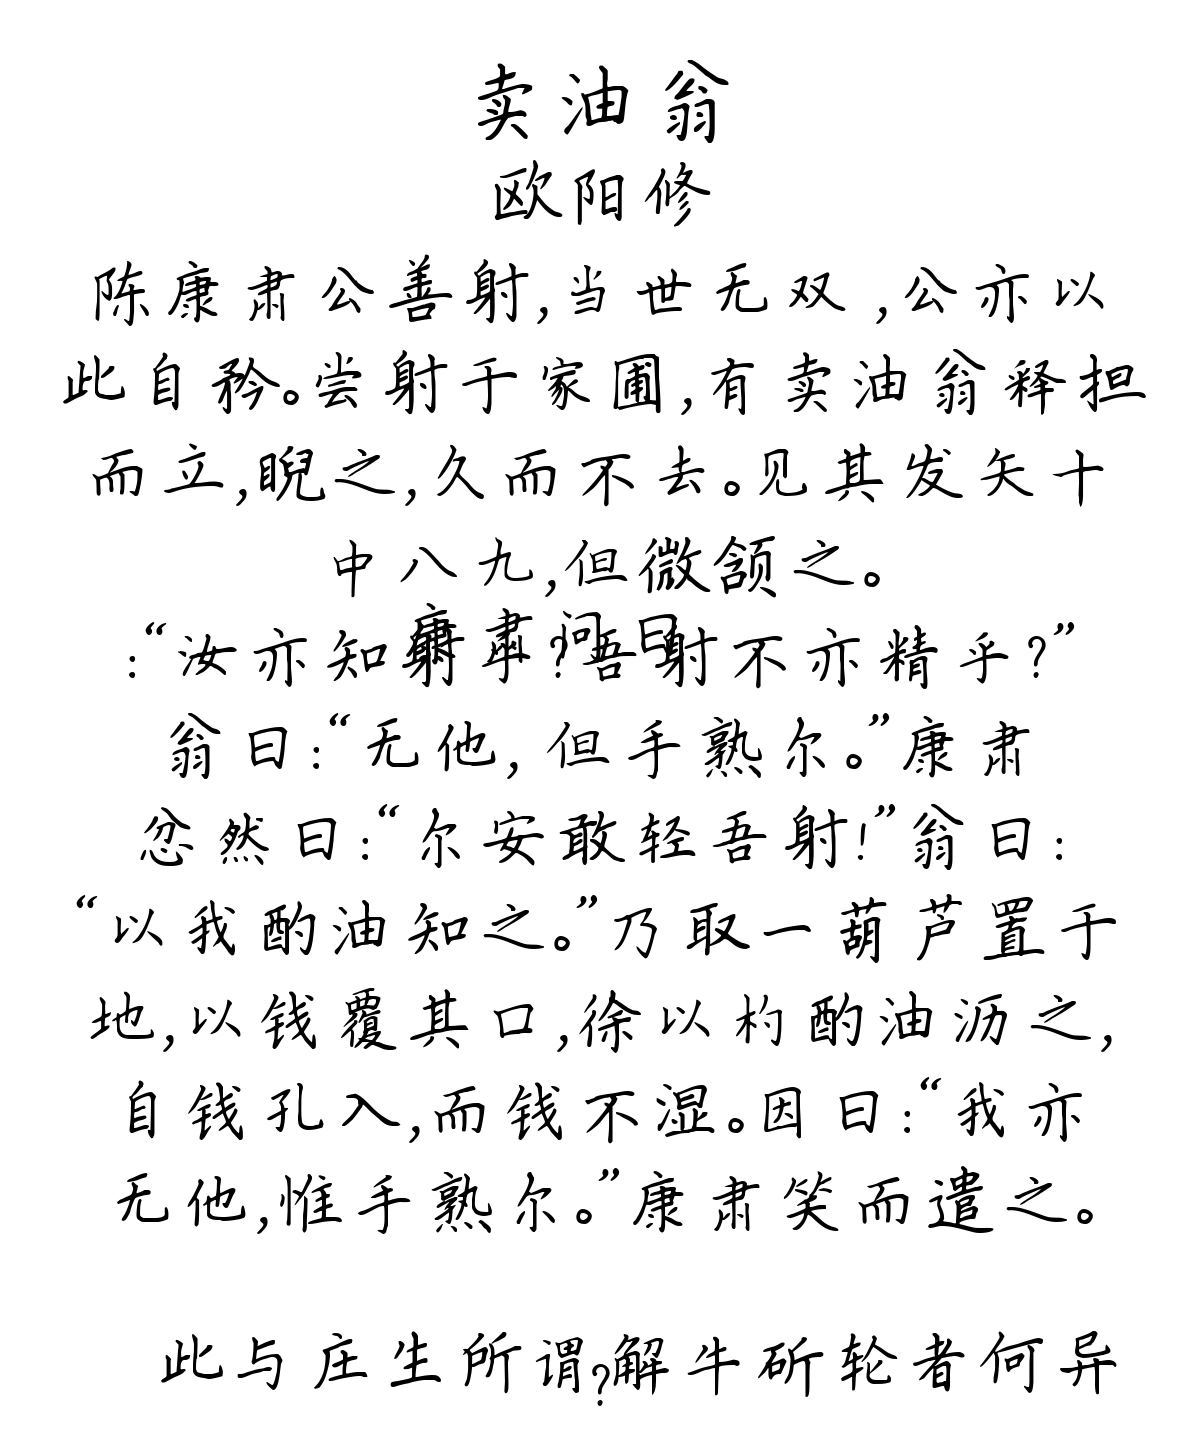 卖油翁
欧阳修
陈康肃公善射,当世无双,公亦以
此自矜。尝射于家圃,有卖油翁释担
而立,睨之,久而不去。见其发矢十
中八九,但微颔之。
康肃问曰
:“汝亦知射乎?吾射不亦精乎?”
翁曰:“无他,但手熟尔。”康肃
忿然曰:“尔安敢轻吾射!”翁曰:
“以我酌油知之。”乃取一葫芦置于
地,以钱覆其口,徐以杓酌油沥之,
自钱孔入,而钱不湿。因曰:“我亦
无他,惟手熟尔。”康肃笑而遣之。
此与庄生所谓解牛斫轮者何异
?